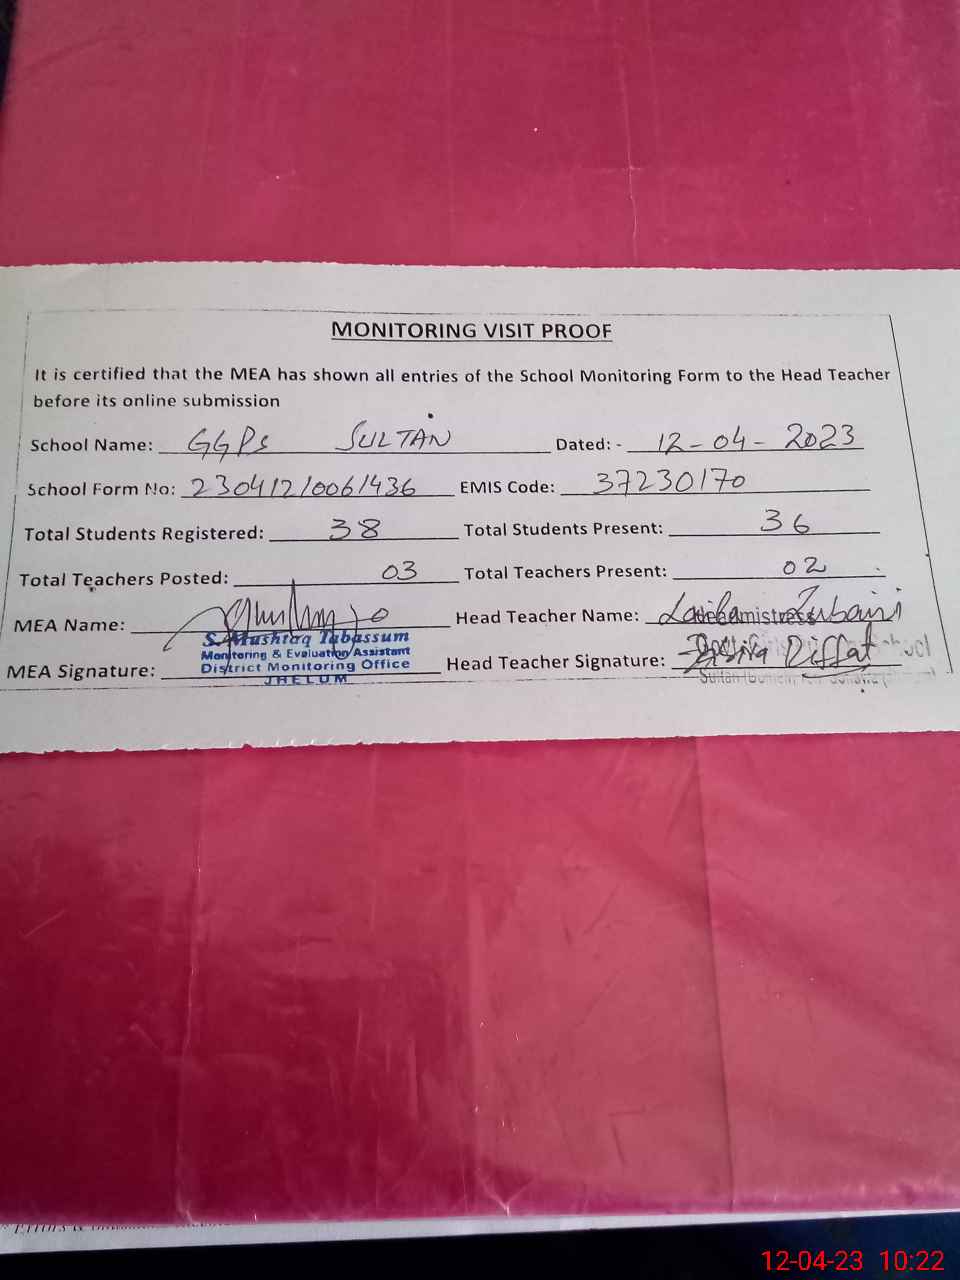 MONITORING VISIT PROOF
It is certified that the MEA has shown all entries of the School Monitoring Form to the Head Teacher
before its online submission
School Name: GGPS SULTAN Dated: - 12-04-2023
School Form No: 230412/0061436 EMIS Code: 37230170
Total Students Registered: 38 Total Students Present: 36
Total Teachers Posted: 03 Total Teachers Present: 02
MEA Name: Head Teacher Name: Zubairi
S. Mushtaq Tabassum
Monitoring & Evaluation Assistant
MEA Signature: District Monitoring Office Head Teacher Signature: Riffat
JHELUM
12-04-23 10:22